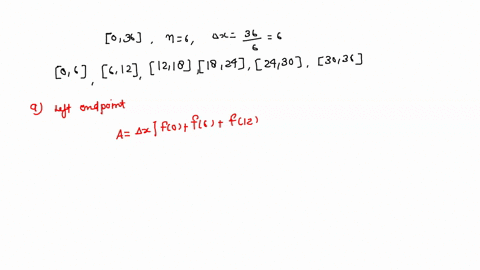 [0,36], n=6, Δx= 36/6 = 6
[0,6], [6,12], [12,18], [18,24], [24,30], [30,36]
a) Left endpoint
A= Δx [ f(0)+ f(6) + f(12)